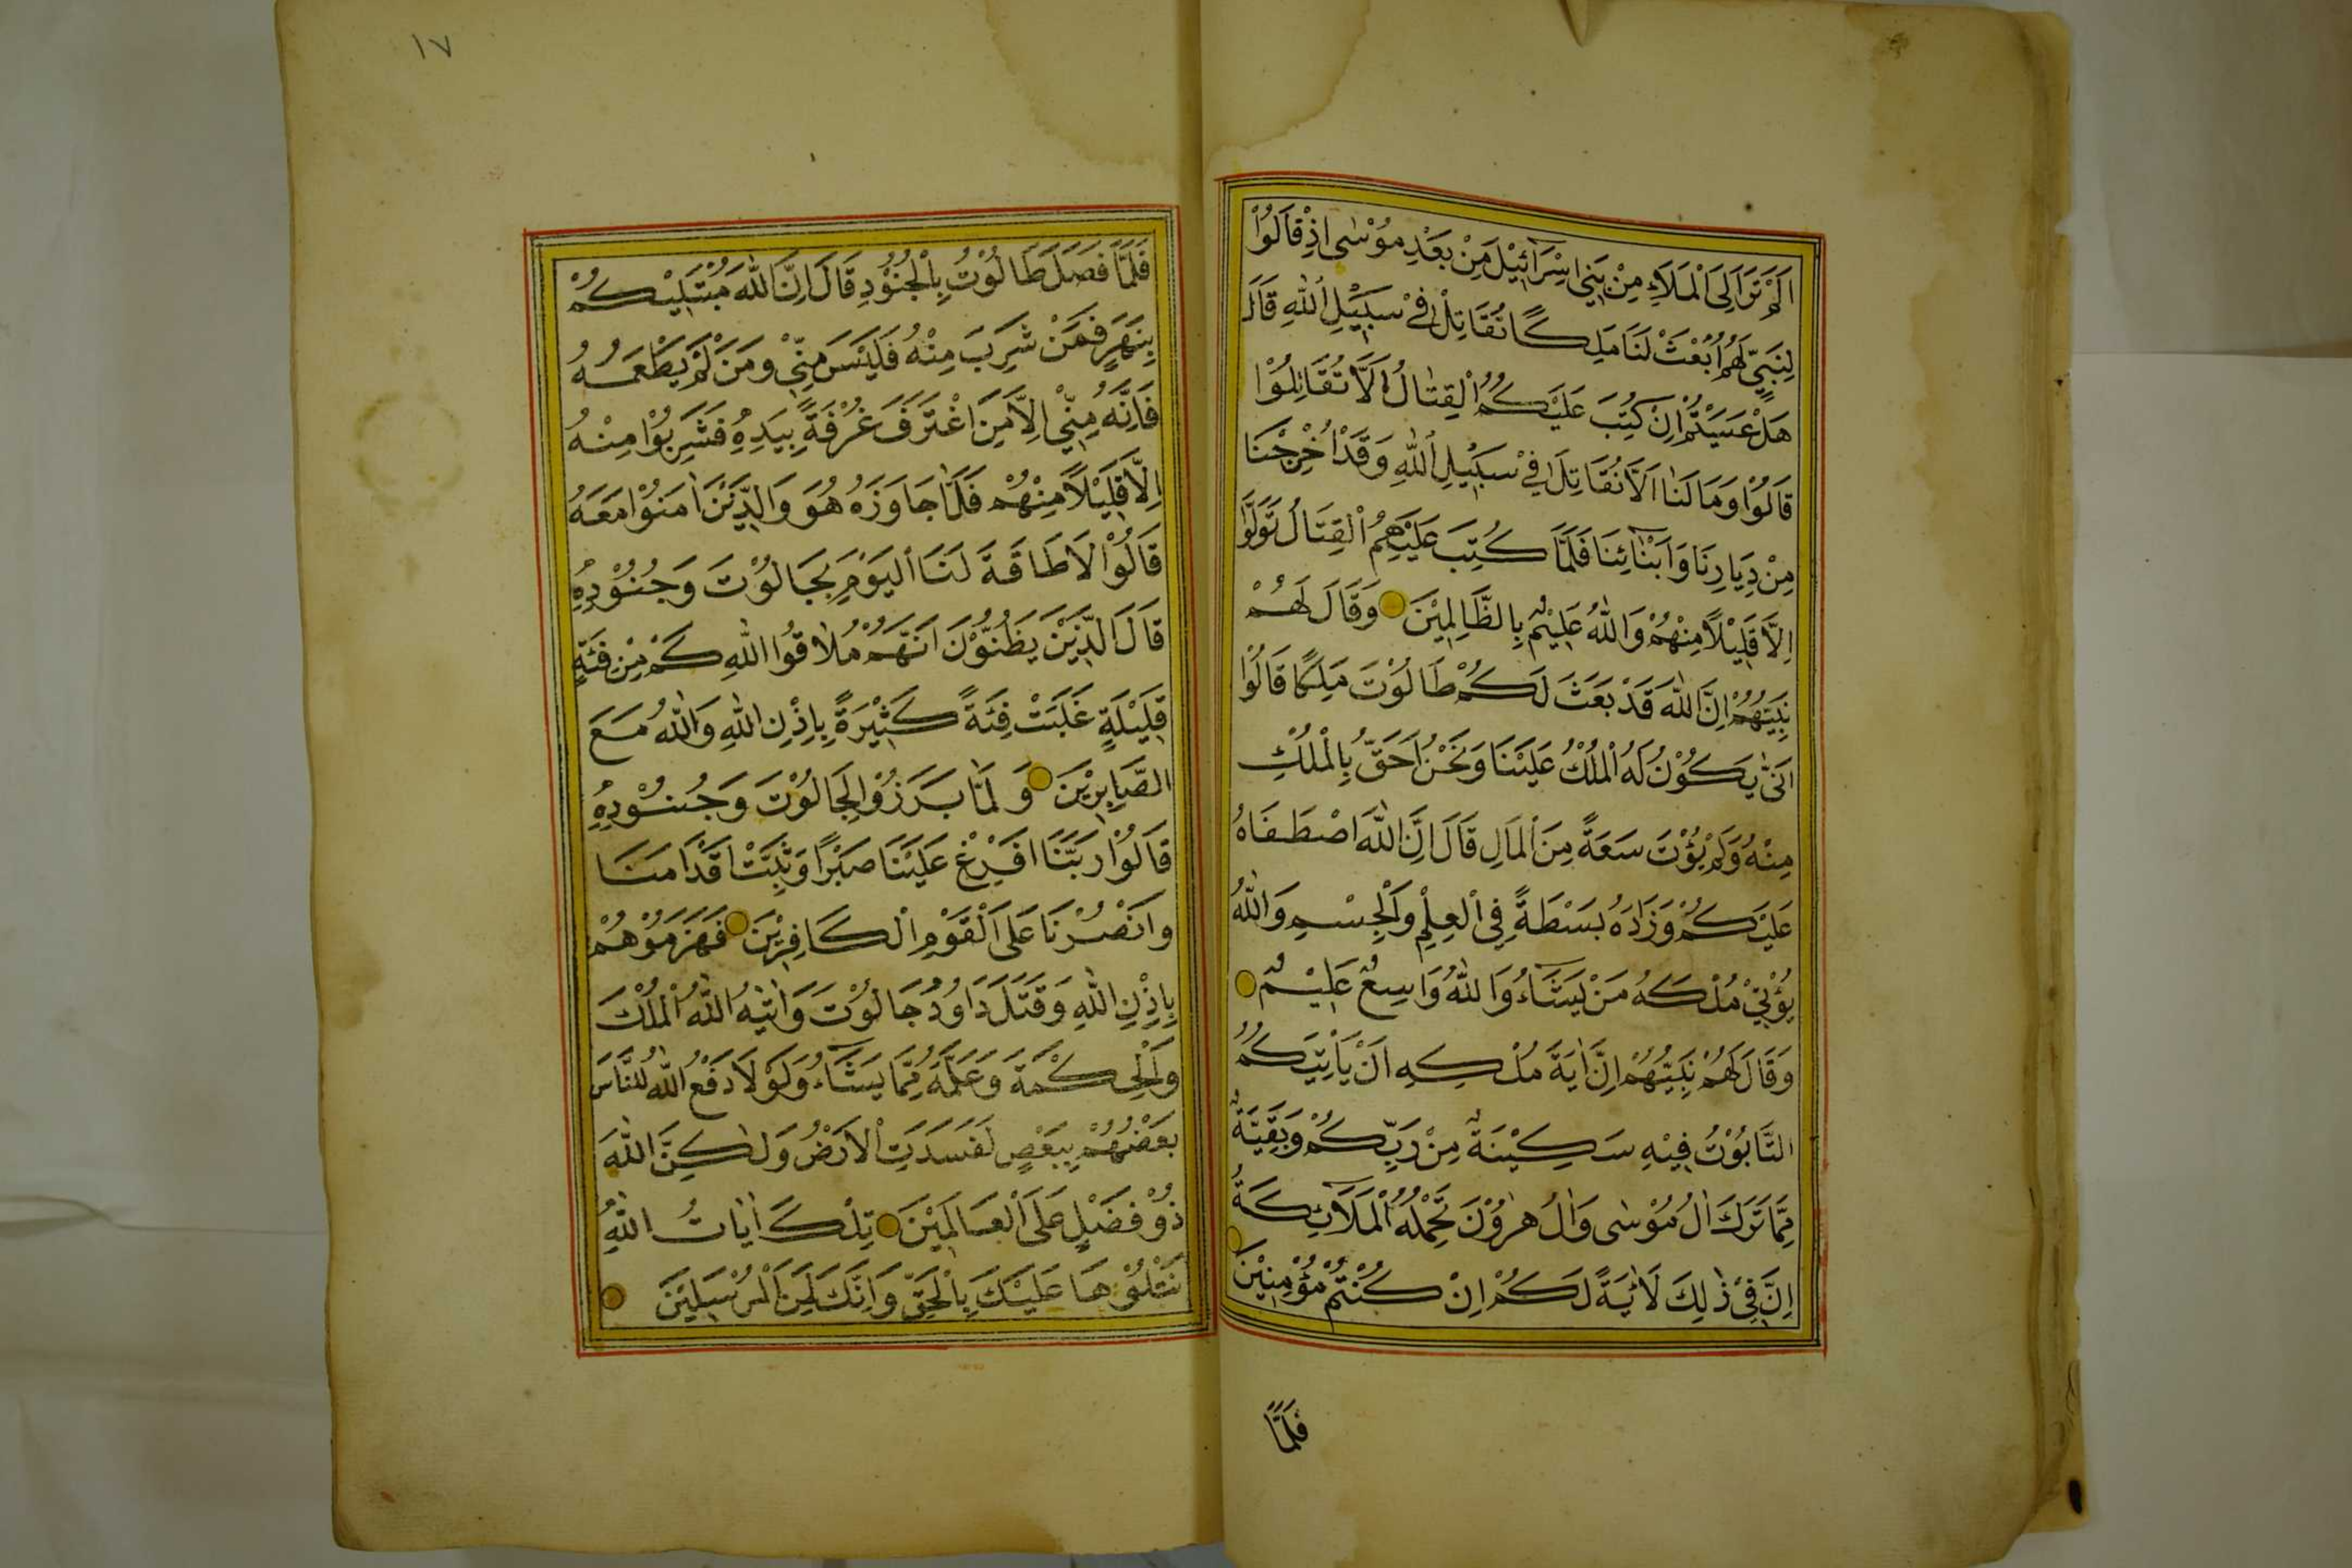 اَلَمْ تَرَ اِلَى الْمَلَاءِ مِنْ بَنِي اِسْرَائِيْلَ مِنْ بَعْدِ مُوْسٰى اِذْ قَالُوْا
لِنَبِيٍّ لَهُمُ ابْعَثْ لَنَا مَلِكًا نُقَاتِلْ فِيْ سَبِيْلِ اللّٰهِ قَالَ
هَلْ عَسَيْتُمْ اِنْ كُتِبَ عَلَيْكُمُ الْقِتَالُ اَلَّا تُقَاتِلُوْا
قَالُوْا وَمَا لَنَا اَلَّا نُقَاتِلَ فِيْ سَبِيْلِ اللّٰهِ وَقَدْ اُخْرِجْنَا
مِنْ دِيَارِنَا وَاَبْنَائِنَا فَلَمَّا كُتِبَ عَلَيْهِمُ الْقِتَالُ تَوَلَّوْا
اِلَّا قَلِيْلًا مِنْهُمْ وَاللّٰهُ عَلِيْمٌ بِالظَّالِمِيْنَ وَقَالَ لَهُمْ
نَبِيُّهُمْ اِنَّ اللّٰهَ قَدْ بَعَثَ لَكُمْ طَالُوْتَ مَلِكًا قَالُوْا
اَنّٰى يَكُوْنُ لَهُ الْمُلْكُ عَلَيْنَا وَنَحْنُ اَحَقُّ بِالْمُلْكِ
مِنْهُ وَلَمْ يُؤْتَ سَعَةً مِنَ الْمَالِ قَالَ اِنَّ اللّٰهَ اصْطَفَاهُ
عَلَيْكُمْ وَزَادَهُ بَسْطَةً فِي الْعِلْمِ وَالْجِسْمِ وَاللّٰهُ
يُؤْتِيْ مُلْكَهُ مَنْ يَشَاءُ وَاللّٰهُ وَاسِعٌ عَلِيْمٌ
وَقَالَ لَهُمْ نَبِيُّهُمْ اِنَّ اٰيَةَ مُلْكِهِ اَنْ يَأْتِيَكُمُ
التَّابُوْتُ فِيْهِ سَكِيْنَةٌ مِنْ رَبِّكُمْ وَبَقِيَّةٌ
مِمَّا تَرَكَ اٰلُ مُوْسٰى وَاٰلُ هٰرُوْنَ تَحْمِلُهُ الْمَلَائِكَةُ
اِنَّ فِيْ ذٰلِكَ لَاٰيَةً لَكُمْ اِنْ كُنْتُمْ مُؤْمِنِيْنَ
فَلَمَّا
١٧
فَلَمَّا فَصَلَ طَالُوْتُ بِالْجُنُوْدِ قَالَ اِنَّ اللّٰهَ مُبْتَلِيْكُمْ
بِنَهَرٍ فَمَنْ شَرِبَ مِنْهُ فَلَيْسَ مِنِّيْ وَمَنْ لَمْ يَطْعَمْهُ
فَاِنَّهُ مِنِّيْ اِلَّا مَنِ اغْتَرَفَ غُرْفَةً بِيَدِهِ فَشَرِبُوْا مِنْهُ
اِلَّا قَلِيْلًا مِنْهُمْ فَلَمَّا جَاوَزَهُ هُوَ وَالَّذِيْنَ اٰمَنُوْا مَعَهُ
قَالُوْا لَا طَاقَةَ لَنَا الْيَوْمَ بِجَالُوْتَ وَجُنُوْدِهِ
قَالَ الَّذِيْنَ يَظُنُّوْنَ اَنَّهُمْ مُلَاقُوا اللّٰهِ كَمْ مِنْ فِئَةٍ
قَلِيْلَةٍ غَلَبَتْ فِئَةً كَثِيْرَةً بِاِذْنِ اللّٰهِ وَاللّٰهُ مَعَ
الصَّابِرِيْنَ وَلَمَّا بَرَزُوْا لِجَالُوْتَ وَجُنُوْدِهِ
قَالُوْا رَبَّنَا اَفْرِغْ عَلَيْنَا صَبْرًا وَثَبِّتْ اَقْدَامَنَا
وَانْصُرْنَا عَلَى الْقَوْمِ الْكَافِرِيْنَ فَهَزَمُوْهُمْ
بِاِذْنِ اللّٰهِ وَقَتَلَ دَاوُدُ جَالُوْتَ وَاٰتٰيهُ اللّٰهُ الْمُلْكَ
وَالْحِكْمَةَ وَعَلَّمَهُ مِمَّا يَشَاءُ وَلَوْلَا دَفْعُ اللّٰهِ النَّاسَ
بَعْضُهُمْ بِبَعْضٍ لَفَسَدَتِ الْاَرْضُ وَلٰكِنَّ اللّٰهَ
ذُوْ فَضْلٍ عَلَى الْعَالَمِيْنَ تِلْكَ اٰيَاتُ اللّٰهِ
نَتْلُوْهَا عَلَيْكَ بِالْحَقِّ وَاِنَّكَ لَمِنَ الْمُرْسَلِيْنَ